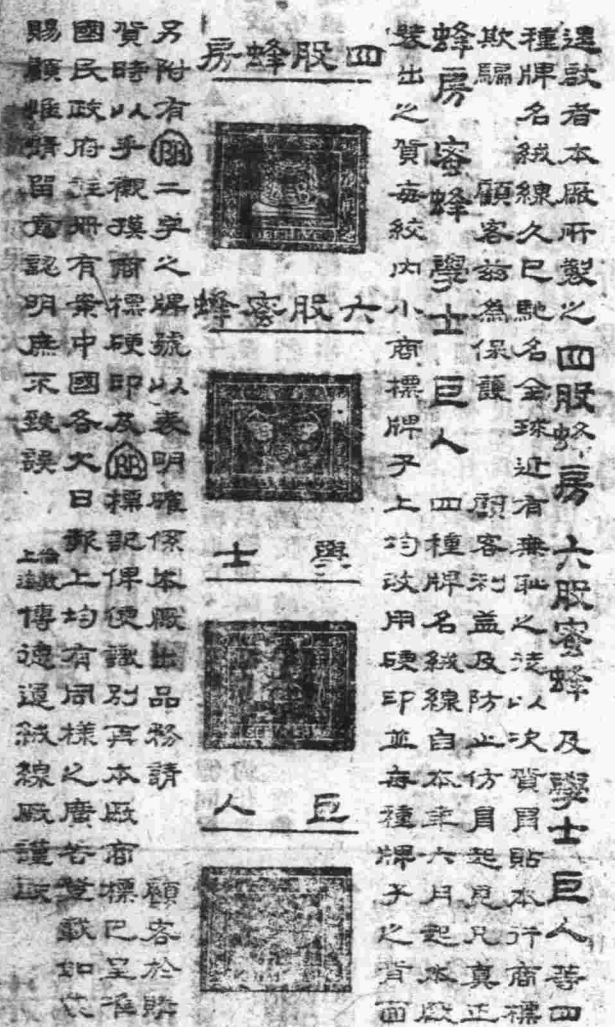 逕啟者本廠所製之四股蜂房 六股蜜蜂 及 學士 巨人 等四
種牌名絨線久已馳名全球近有無恥之徒以次貨冒貼本行商標
欺騙 顧客茲為保護 顧客利益及防止仿冒起見凡真正
蜂房 蜜蜂 學士 巨人 四種牌名絨線自本年六月起本廠
裝出之貨每絞內小商標牌子上均改用硬印並每種牌子之背面
四股蜂房
六股蜜蜂
學士
巨人
另附有BB二字之牌號以表明確係本廠出品務請 顧客於購
貨時以手觀摸商標硬印及BB標記俾便識別再本廠商標已呈准
國民政府註冊有案中國各大日報上均有同樣之廣告登載如蒙
賜顧惟請留意認明庶不致誤 上海 傳德運絨線廠謹啟